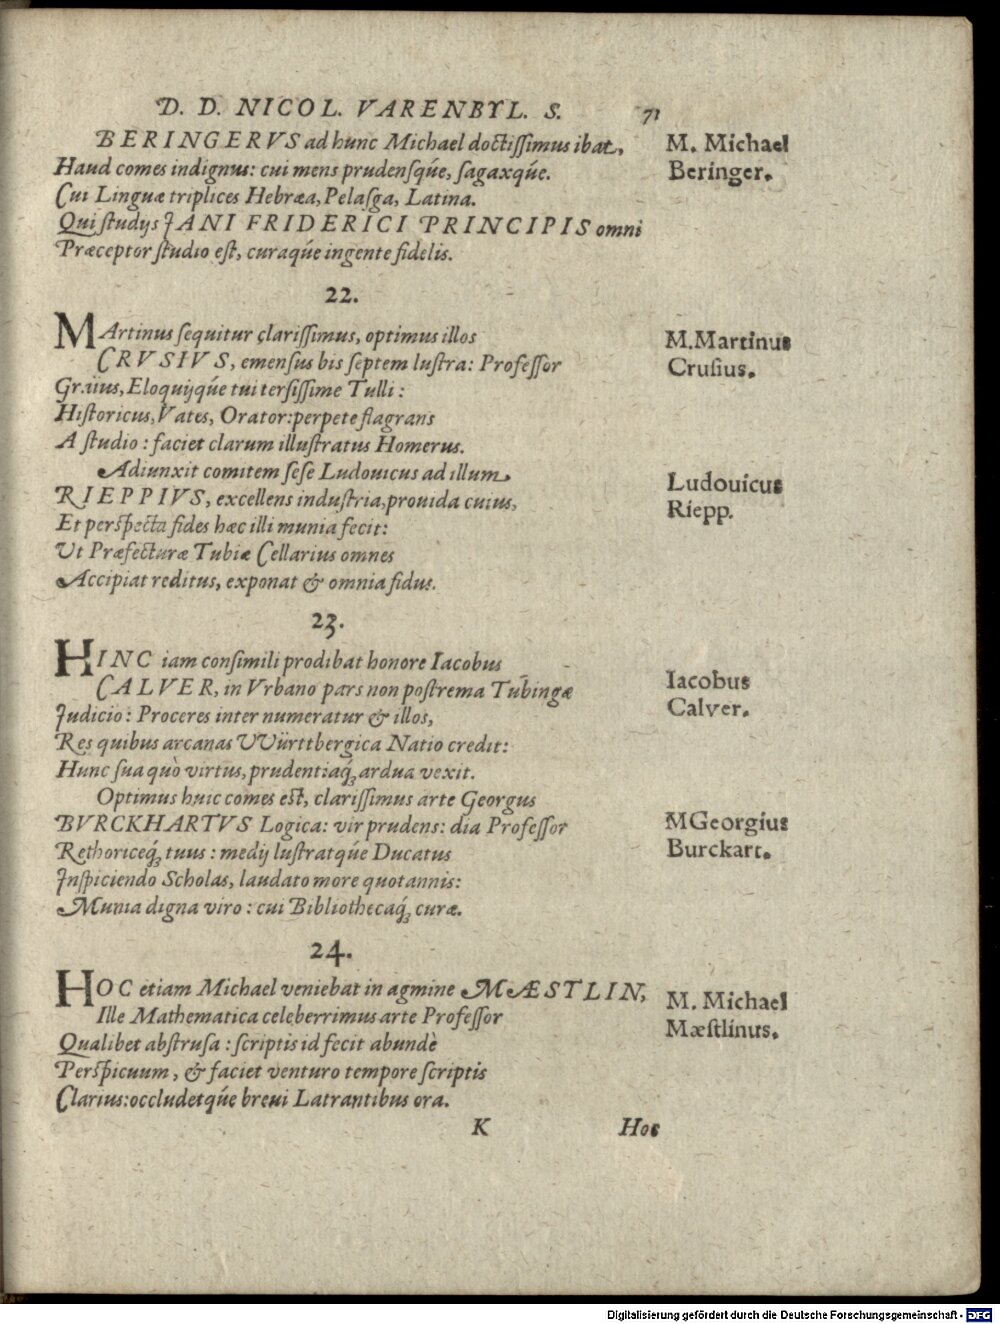 D. D. NICOL. VARENBYL. S. 71
BERINGERVS ad hunc Michael doctissimus ibat,
Haud comes indignus: cui mens prudensqúe, sagaxqúe.
Cui Linguæ triplices Hebræa, Pelasga, Latina.
Qui studijs JANI FRIDERICI PRINCIPIS omni
Præceptor studio est, curaqúe ingente fidelis.
M. Michael
Beringer.
22.
MArtinus sequitur clarissimus, optimus illos
CRVSIVS, emensus bis septem lustra: Professor
Graius, Eloquijqúe tui tersissime Tulli:
Historicus, Vates, Orator: perpete flagrans
A studio: faciet clarum illustratus Homerus.
M. Martinus
Crusius.
Adiunxit comitem sese Ludouicus ad illum
RIEPPIVS, excellens industria, prouida cuius,
Et perspecta fides hæc illi munia fecit:
Ut Præfecturæ Tubiæ Cellarius omnes
Accipiat reditus, exponat & omnia fidus.
Ludouicus
Riepp.
23.
HINC iam consimili prodibat honore Iacobus
CALVER, in Vrbano pars non postrema Tubingæ
Judicio: Proceres inter numeratur & illos,
Res quibus arcanas VVürttbergica Natio credit:
Hunc sua quò virtus, prudentiaq́ꝫ ardua vexit.
Iacobus
Calver.
Optimus huic comes est, clarissimus arte Georgus
BVRCKHARTVS Logica: vir prudens: dia Professor
Rethoriceq́ꝫ tuus: medij lustratqúe Ducatus
Inspiciendo Scholas, laudato more quotannis:
Munia digna viro: cui Bibliothecaq́ꝫ curæ.
MGeorgius
Burckart.
24.
HOC etiam Michael veniebat in agmine MÆSTLIN,
Ille Mathematica celeberrimus arte Professor
Qualibet abstrusa: scriptis id fecit abundè
Perspicuum, & faciet venturo tempore scriptis
Clarius: occludetqúe breui Latrantibus ora.
M. Michael
Mæstlinus.
K Hos
Digitalisierung gefördert durch die Deutsche Forschungsgemeinschaft - DFG